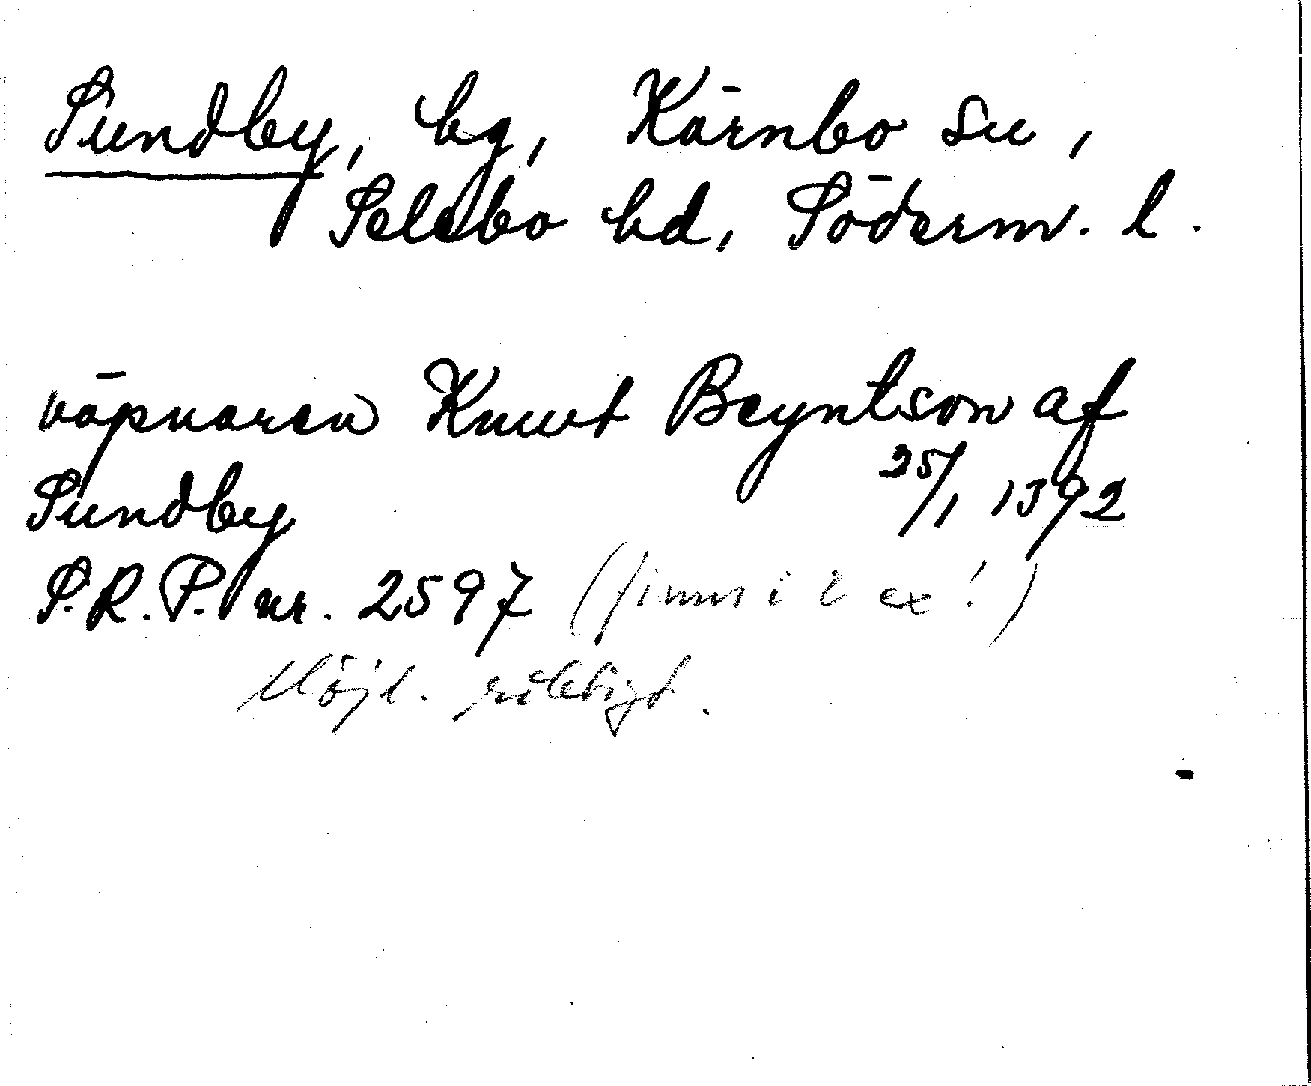 Sundby, hg, Kärnbo sn,
Selebo hd, Söderm. l.
väpnaren Knut Beyntson af
Sundby 25/1 1392
S.R.P. nr. 2597 (finns i 2 ex!)
Möjl. riktigt.